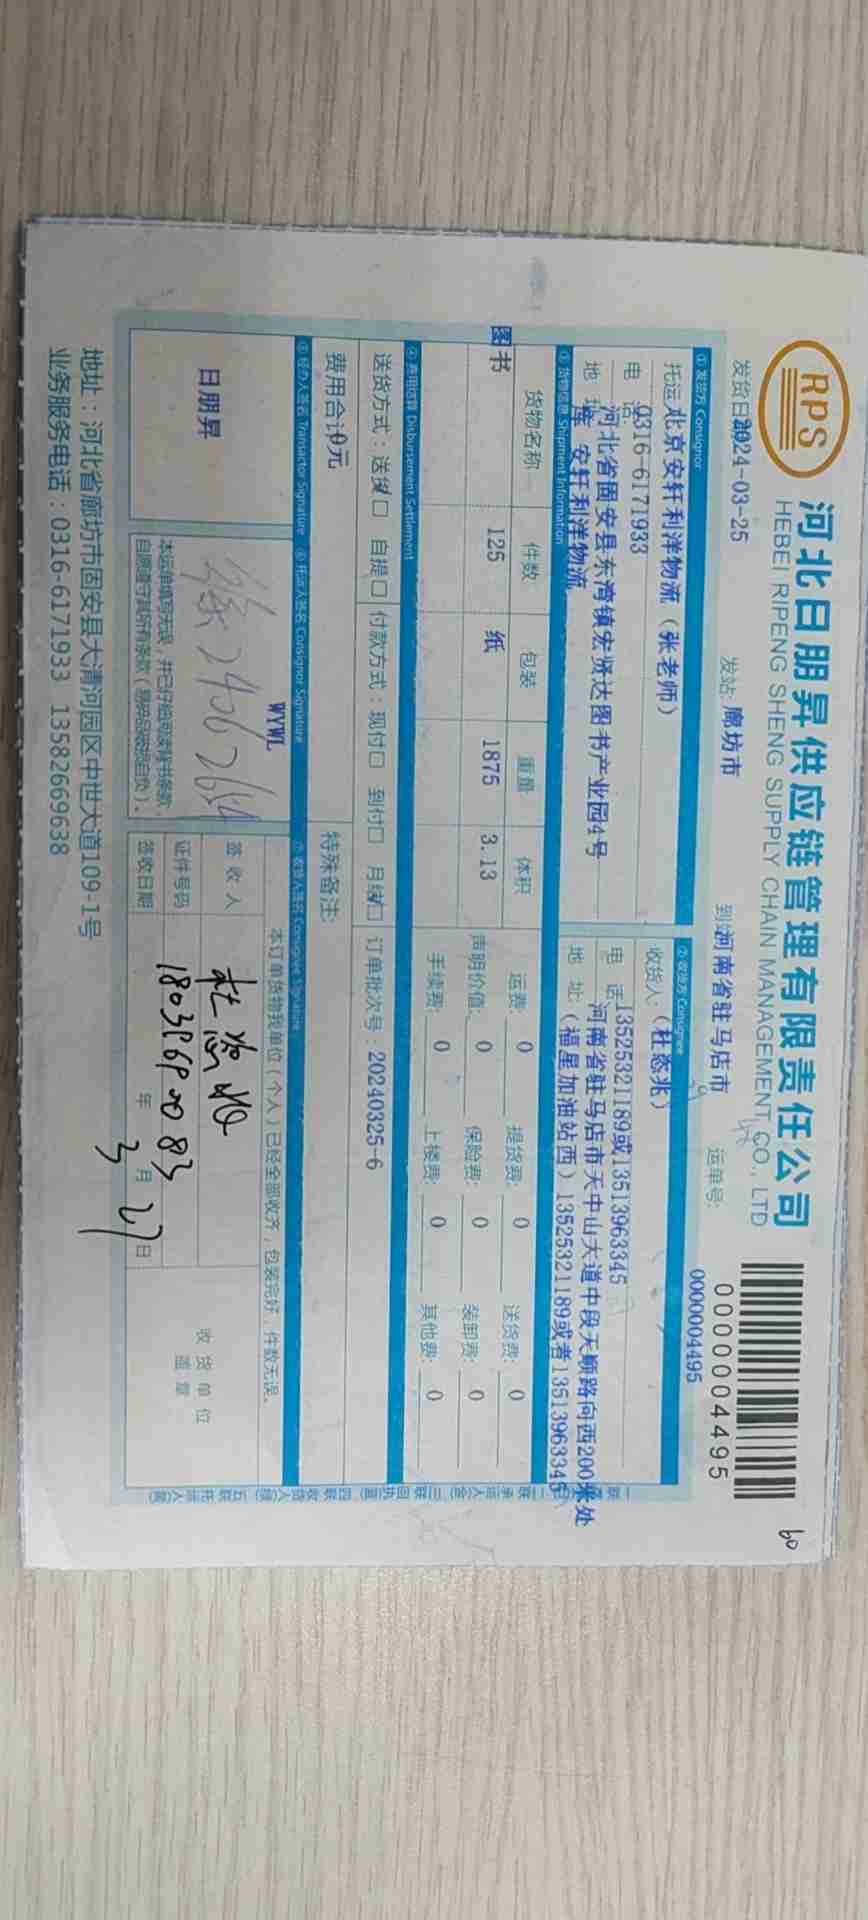 RPS
河北日朋昇供应链管理有限责任公司
HEBEI RIPENG SHENG SUPPLY CHAIN MANAGEMENT CO., LTD
0000004495
60
发货日期 2024-03-25 发站: 廊坊市 到站 河南省驻马店市 运单号: 0000004495
① 发货方 Consignor
托运 北京安轩利洋物流（张老师）
电 话 0316-6171933
地 址 河北省固安县东湾镇宏贤达图书产业园4号
库 安轩利洋物流
② 收货方 Consignee
收货人: （杜态兆）
电 话 13525321189或13513963345
河南省驻马店市天中山大道中段天顺路向西200米处
地 址: （福星加油站西）13525321189或者13513963345
③ 货物信息 Shipment Information
货物名称 件数 包装 重量 体积
图书 125 纸 1875 3.13
运费: 0 提货费: 0 送货费: 0
声明价值: 0 保险费: 0 装卸费: 0
手续费: 0 上楼费: 0 其他费: 0
④ 费用结算 Disbursement Settlement
送货方式：送货 自提 付款方式：现付 到付 月结 订单批次号：20240325-6
费用合计 0元 特殊备注:
⑤ 经办人签名 Transactor Signature ⑥ 托运人签名 Consignor Signature ⑦ 收货人签名 Consignee Signature
日朋昇
WYWL
本运单填写无误，并已仔细阅读背书条款，
自愿遵守其所有条款（易碎品破损自负）。
本订单货物我单位（个人）已经全部收齐，包装完好，件数无误。
签收人
证件号码
签收日期 年 3 月 27 日
收货单位
盖章
地址：河北省廊坊市固安县大清河园区中世大道109-1号
业务服务电话：0316-6171933 13582669638